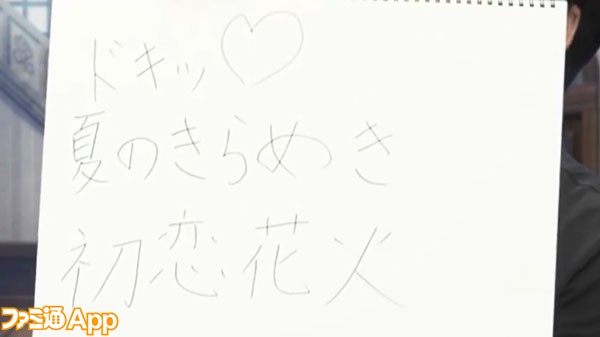 ドキッ♡
夏のきらめき
初恋花火
ファミ通App